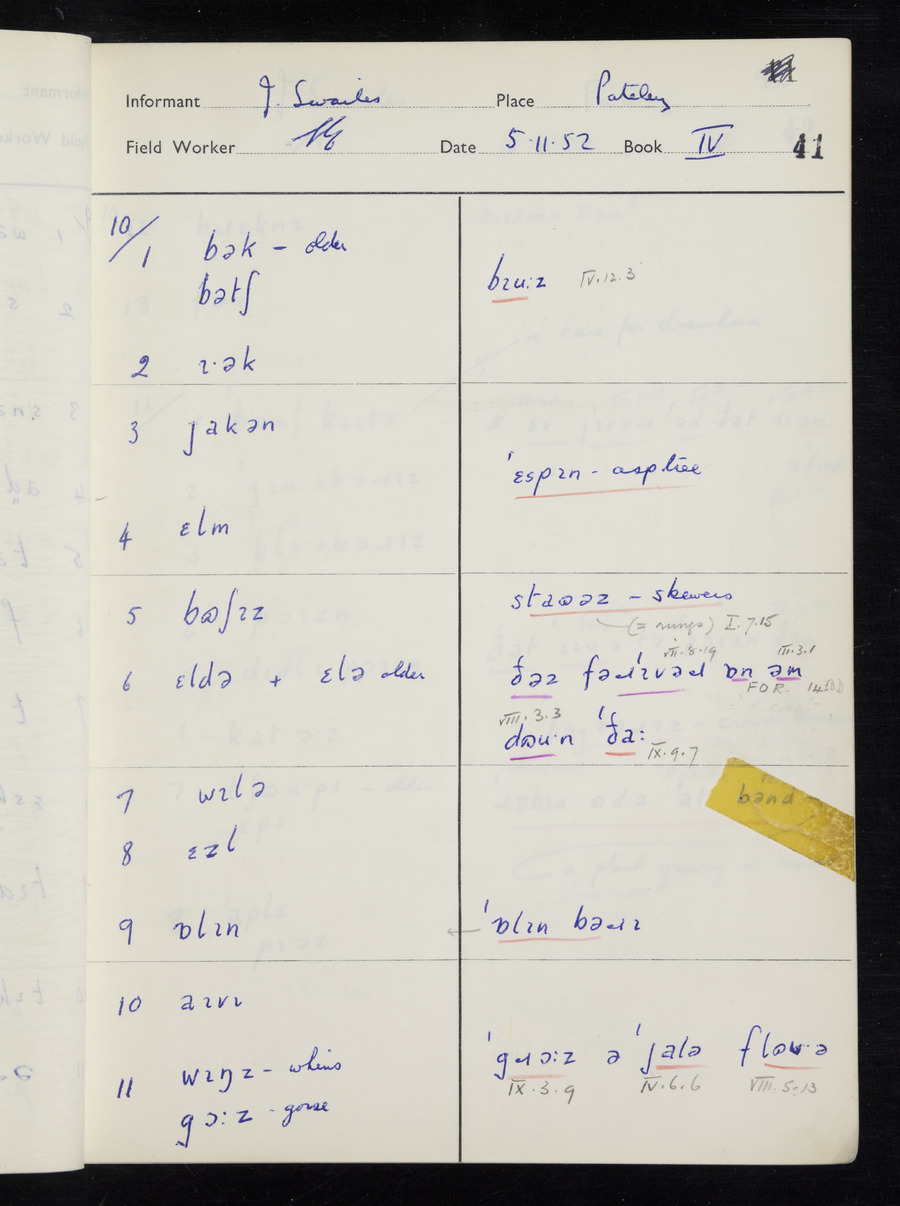 Informant J. Swailes Place Pateley
Field Worker Date 5.11.52 Book IV 41
10/1 bək - older
bətʃ
bɹu:z IV.12.3
2 ɹ·ək
3 jakən
'ɛspɪn - asptree
4 ɛlm
5 bʊʃɪz
staʊəz - skewers
(= rungs) I.7.15
6 ɛldə + ɛlə older
VII.8.19 III.3.1
FOR.
VIII.3.3
dəu·n 'ða: IX.9.7
7 wɪlə
bənd
8 ɛzl
9 ɒlɪn
← 'ɒlɪn bəɹɪ
10 aɪvɪ
11 wɪŋz - whins
gɔ:z - gorse
'gɹɔ:z ə 'jalə flaʊ·ə
IX.3.9 IV.6.6 VIII.5.13